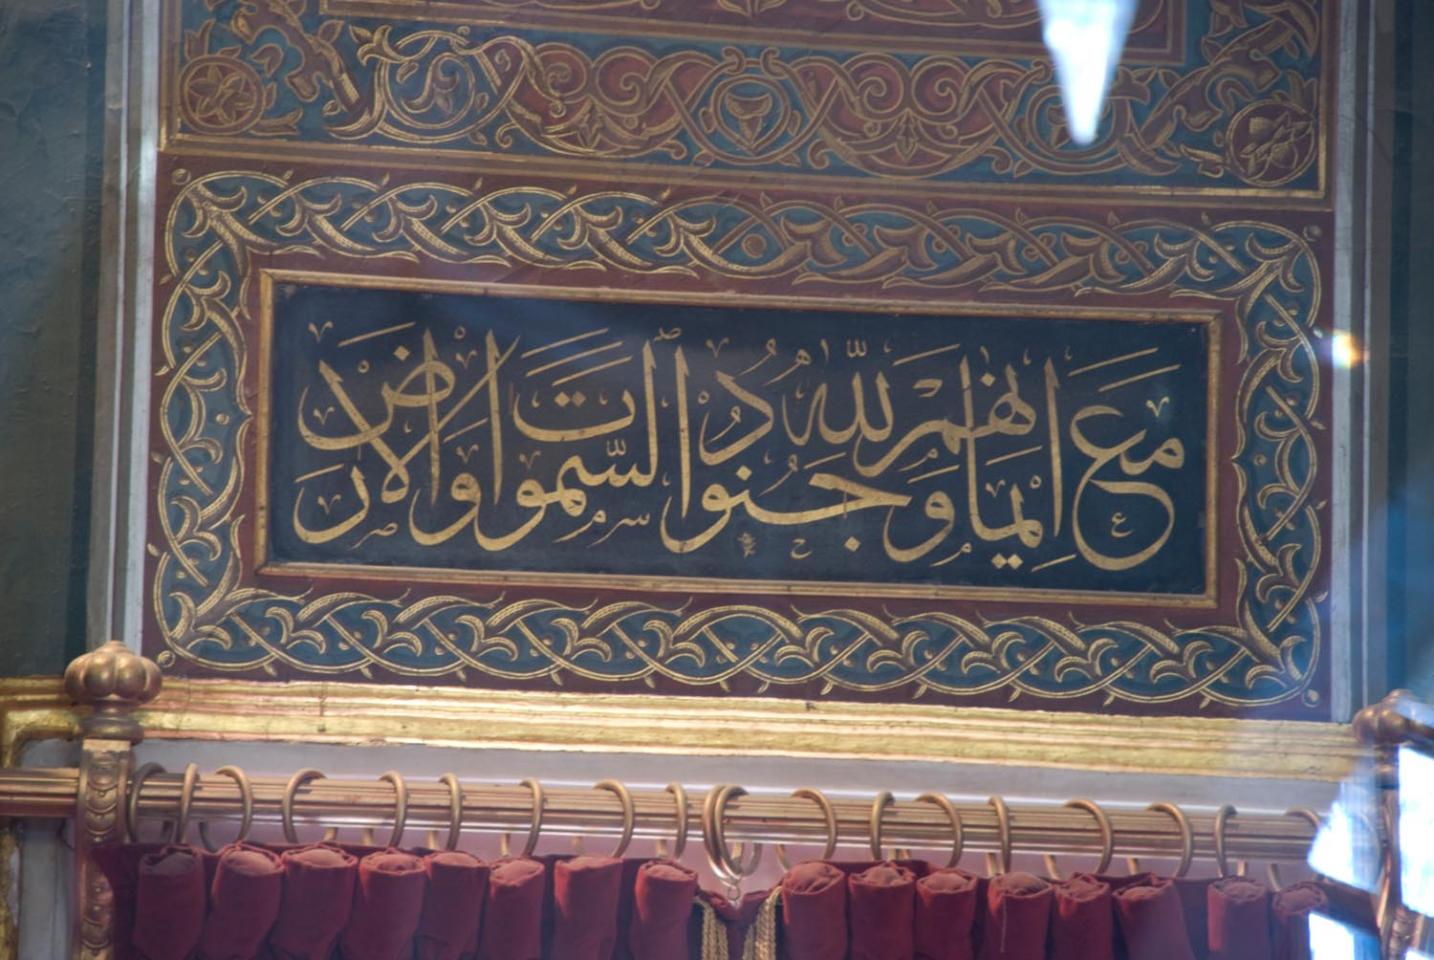 مع ايمانهم ولله جنود السموات والارض